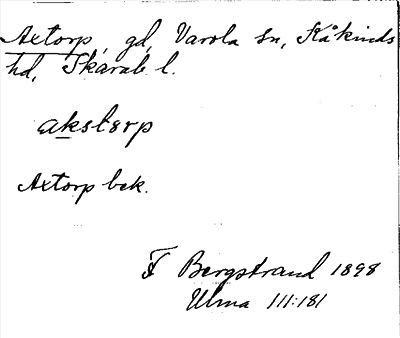 Axtorp, gd, Varola sn, Kåkinds
hd, Skarab. l.
akstərp
Axtorp bek.
F Bergstrand 1898
Ulma 111:181